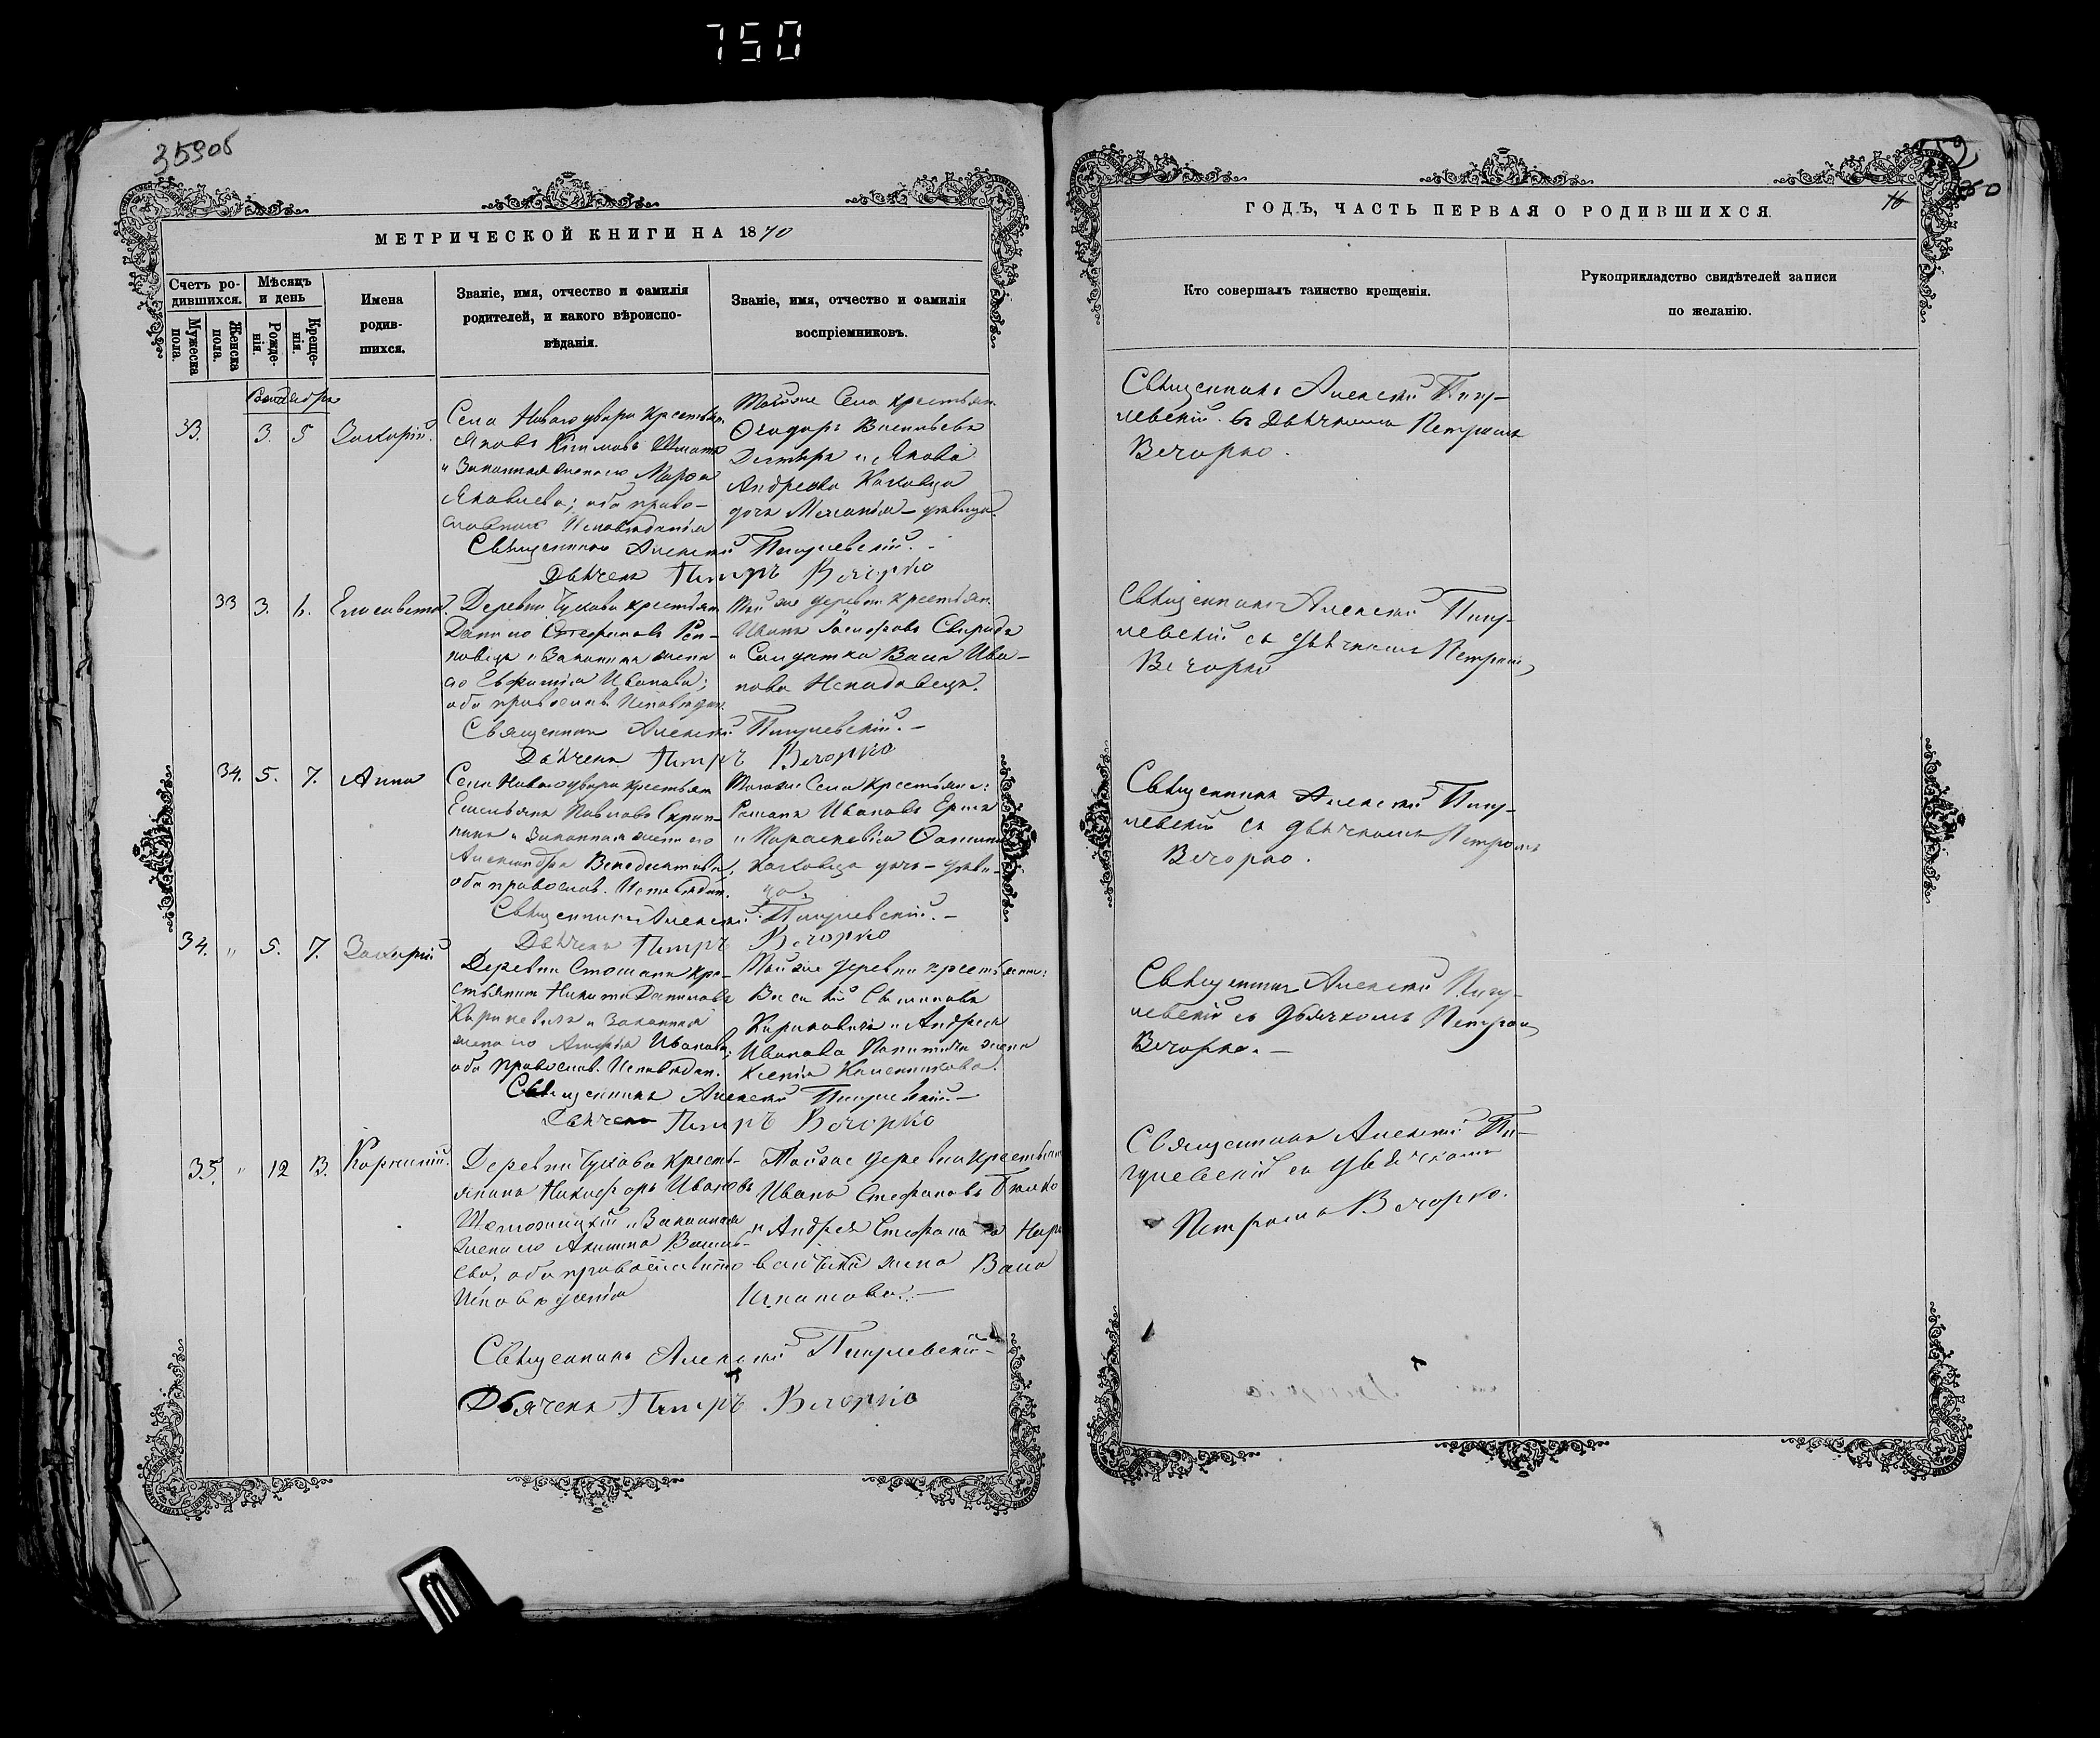 750
359об
МЕТРИЧЕСКОЙ КНИГИ НА 1870
Счетъ ро-
дившихся.
Мужеска
пола.
Женска
пола.
Мѣсяцъ
и день
Рожде-
нія.
Креще-
нія.
Имена
родив-
шихся.
Званіе, имя, отчество и фамилія
родителей, и какого вѣроиспо-
вѣданія.
Званіе, имя, отчество и фамилія
воспріемниковъ.
33. 3. 5 Захарій.
Села Новаго двора крестьян.
Яковъ Климовъ
и законная жена его Марѳа
Яковлева; оба право-
славнаго исповѣданія
Тогоже Села крестьян.
Ѳеодоръ Васильевъ
и Якова
Андреева
дочь Меланія – дѣвица.
Священникъ Алексѣй Пигулевскій. -
Дьячекъ Петръ Вечорко
33 3. 6. Елисавета.
Деревни Чухова крестьян.
Данило Стефановъ
и законная жена
его Евфимія Иванова;
оба православ. исповѣдан.
Той же деревни крестьян.
Иванъ
и Солдатка Васа Ива-
нова
Священникъ Алексѣй Пигулевскій. -
Дьячекъ Петръ Вечорко
34. 5. 7. Анна
Села Новаго двора крестьян
Емельянъ Павловъ
и законная жена его
Александра Венедиктова;
оба православ. исповѣдан.
Тогоже Села крестьяне:
Романъ Ивановъ
и Параскевія
дочь – дѣви-
ца.
Священникъ Алексѣй Пигулевскій. -
Дьячекъ Петръ Вечорко
34. " 5. 7. Захарій
Деревни Стошанъ кре-
стьянинъ Никита Даниловъ
и законная
жена его Иванова;
оба православ. исповѣдан.
Той же деревни крестьяне:
Василій
и Андрея
Иванова жена
Ксенія
Священникъ Алексѣй Пигулевскій -
Дьячекъ Петръ Вечорко
35. " 12 13. Корнилій.
Деревни Чухова кресть-
янинъ Никифоръ Ивановъ
и законная
жена его Акилина Василь-
ева, оба православнаго
исповѣданія
Тойже деревни крестьян
Иванъ Стефановъ
и Андрея Стефанова
жена Васа
Игнатова. -
Священникъ Алексѣй Пигулевскій -
Дьячекъ Петръ Вечорко
ГОДЪ, ЧАСТЬ ПЕРВАЯ О РОДИВШИХСЯ.
Кто совершалъ таинство крещенія.
Рукоприкладство свидѣтелей записи
по желанію.
Священникъ Алексѣй Пигу-
левскій съ Дьячкомъ Петромъ
Вечорко.
Священникъ Алексѣй Пигу-
левскій съ дьячкомъ Петромъ
Вечорко
Священникъ Алексѣй Пигу-
левскій съ дьячкомъ Петромъ
Вечорко.
Священникъ Алексѣй Пигу-
левскій съ дьячкомъ Петромъ
Вечорко. -
Священникъ Алексѣй Пи-
гулевскій съ дьячкомъ
Петромъ Вечорко.